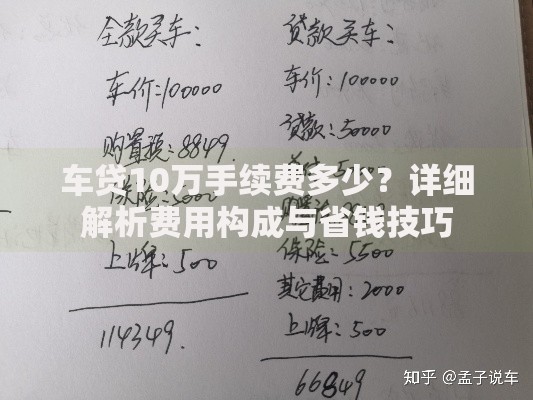 全款买车：
车价：100000
购置税：8849.
保险：5000
上牌：500
114349.
贷款买车：
车价：100000
贷款：50000
保险：5500
其它费用：2000
上牌：500
66849
车贷10万手续费多少？详细
解析费用构成与省钱技巧
知乎 @孟子说车